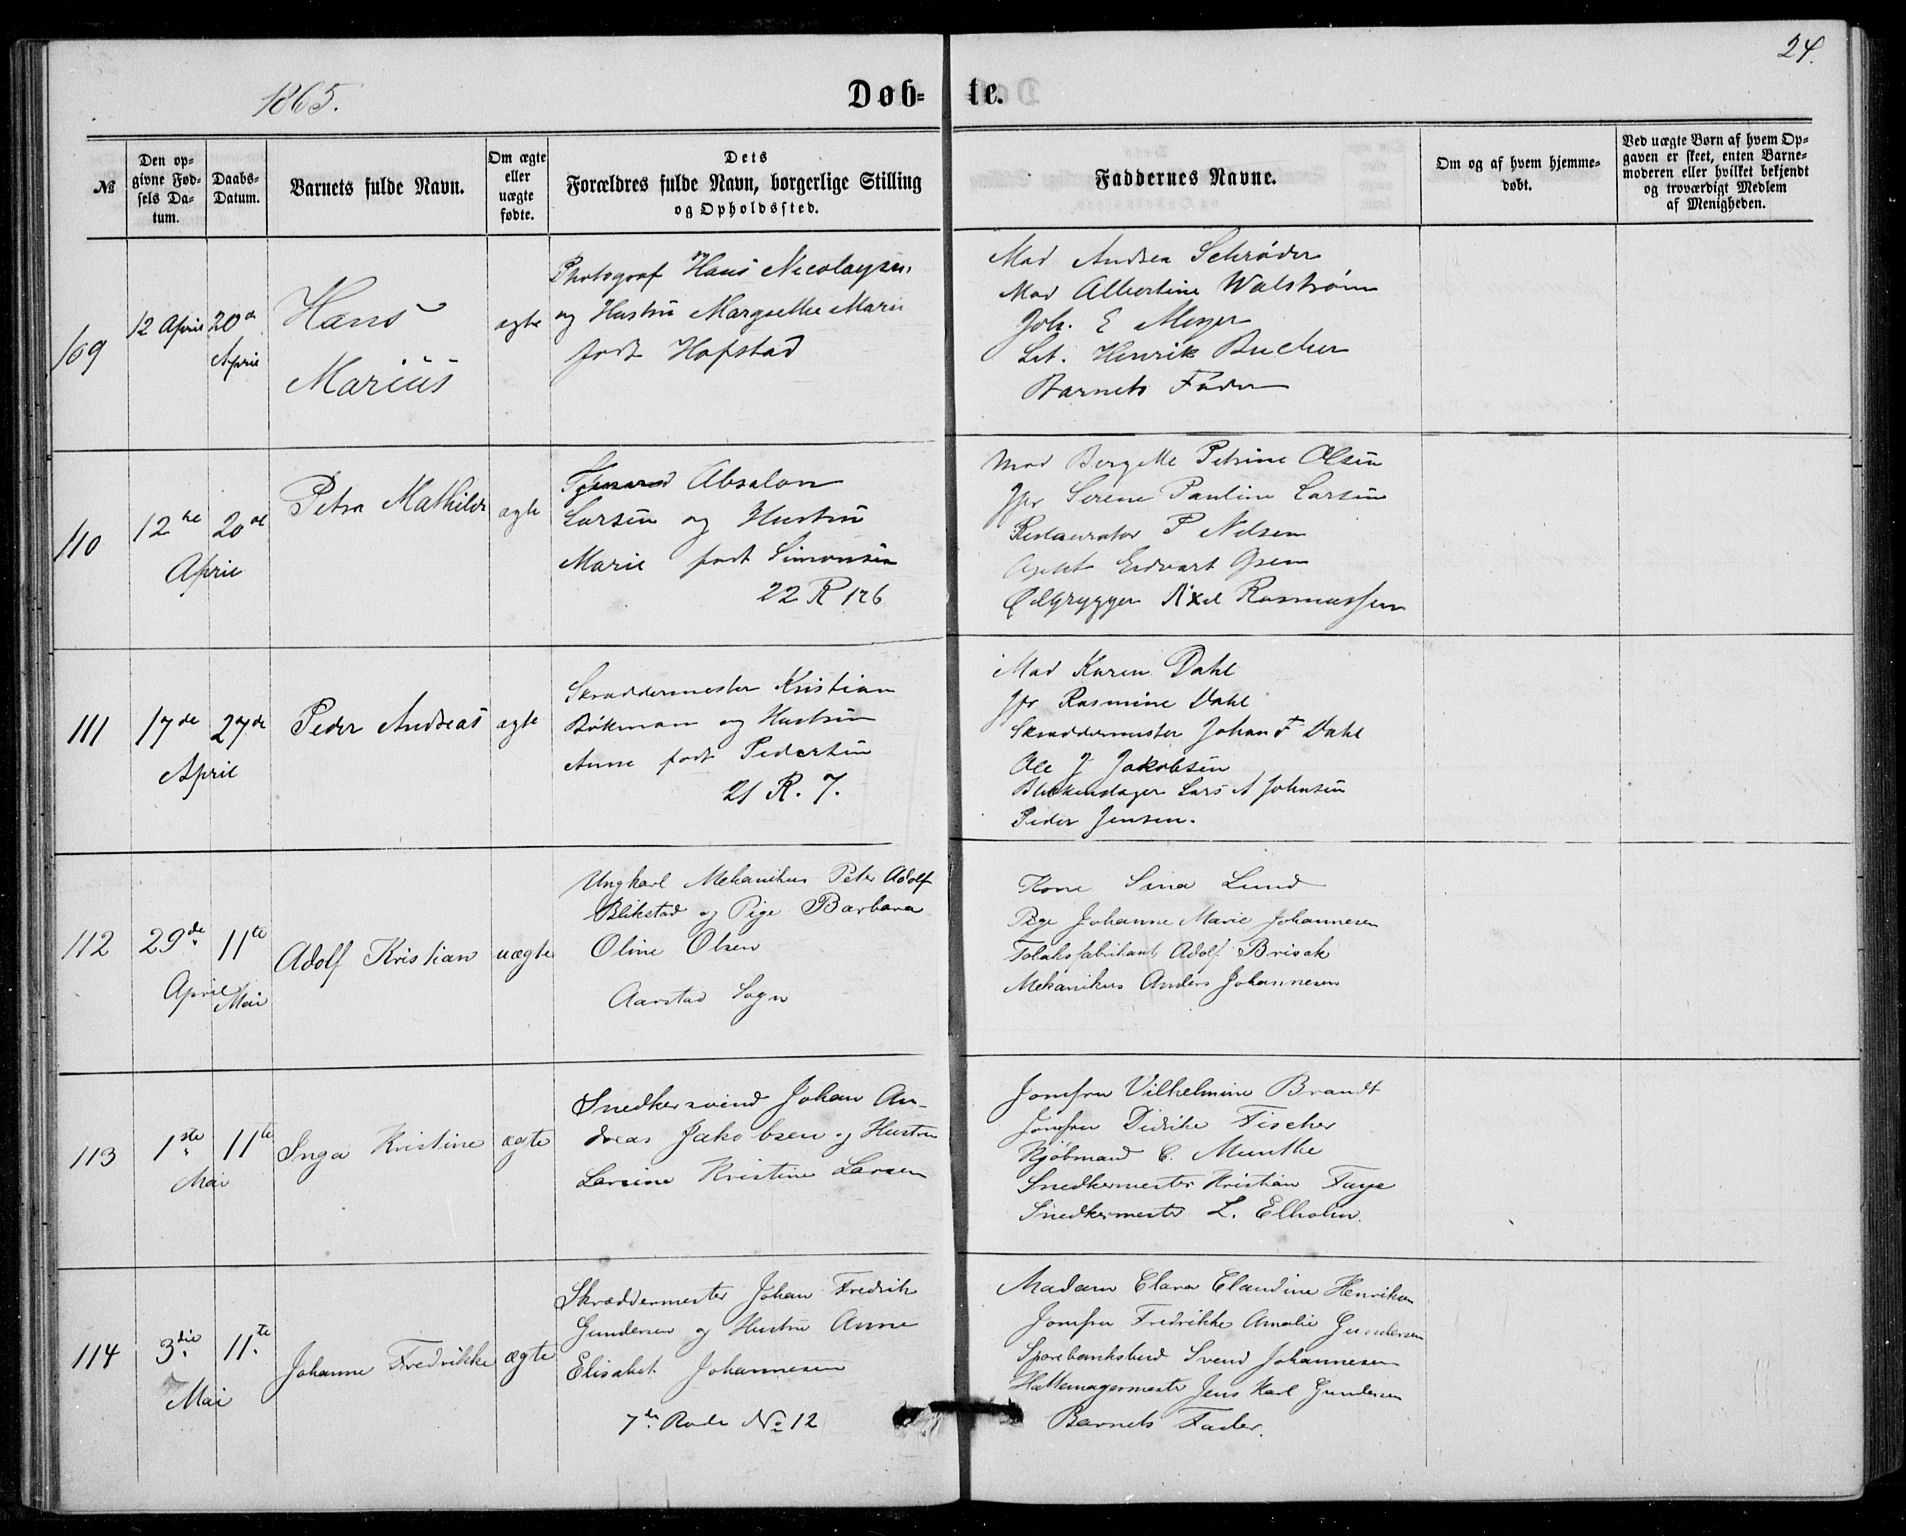 24.
1865.
Døb- te.
№
Den op-
givne Fød-
sels Da-
tum.
Daabs-
Datum.
Barnets fulde Navn.
Om ægte
eller
uægte
fødte.
Dets
Forældres fulde Navn, borgerlige Stilling
og Opholdssted.
Faddernes Navne.
Om og af hvem hjemme-
døbt.
Ved uægte Børn af hvem Op-
gaven er skeet, enten Barne-
moderen eller hvilket bekjendt
og troværdigt Medlem
af Menigheden.
109
12 April
20de
April
Hans
Marius
ægte
Photograf Hans Nicolaysen
og Hustru Margrethe Marie
født Hofstad
Mad Andrea Schrøder
Mad Albertine Walstrøm
Joh. E Meyer
Henrik Bucher
Barnets Fader
110
12te
April
20de
Petra Mathilde
ægte
Absalon
Larsen og Hustru
Marie født Simonsen
22 R 126
Mad Bergette Petrine Olsen
Jfr Serene Pauline Larsen
Restauratør P Nilsen
Edvart
Ølbrygger Axel Rasmussen
111
17de
April
27de
Peder Andreas
ægte
Skræddermester Kristian
Bøkman og Hustru
Anne født Pedersen
21 R. 7.
Mad Karen Dahl
Jfr Rasmine Dahl
Skræddermester Johan F Dahl
Ole J Jakobsen
Blikkenslager Lars A Johnsen
Peder Jensen.
112
29de
April
11te
Mai
Adolf Kristian
uægte
Ungkarl Mekanikus Peter Adolf
Blikstad og Pige Barbara
Oline Olsen
Aarstad Sogn
Kone Sina Lund
Pige Johanne Marie Johannesen
Tobaksfabrikant Adolf Brisak
Mekanikus Anders Johannesen
113
1ste
Mai
11te
Inga Kristine
ægte
Snedkersvend Johan An-
dreas Jakobsen og Hustru
Larsine Kristine Larsen
Jomfru Vilhelmine Brandt
Jomfru Didrike Fischer
Kjøbmand C. Munthe
Snedkermester Kristian Faye
Snedkermester L. Elholm.
114
3die
Mai
11te
Johanne Fredrikke
ægte
Skræddermester Johan Fredrik
Gundersen og Hustru Anne
Elisabet Johannesen
7de Rode No 12
Madam Clara Claudine Henriksen
Jomfru Fredrikke Amalie Gundersen
Sparebanksbud Svend Johannesen
Hattemagermester Jens Karl Gundersen
Barnets Fader.